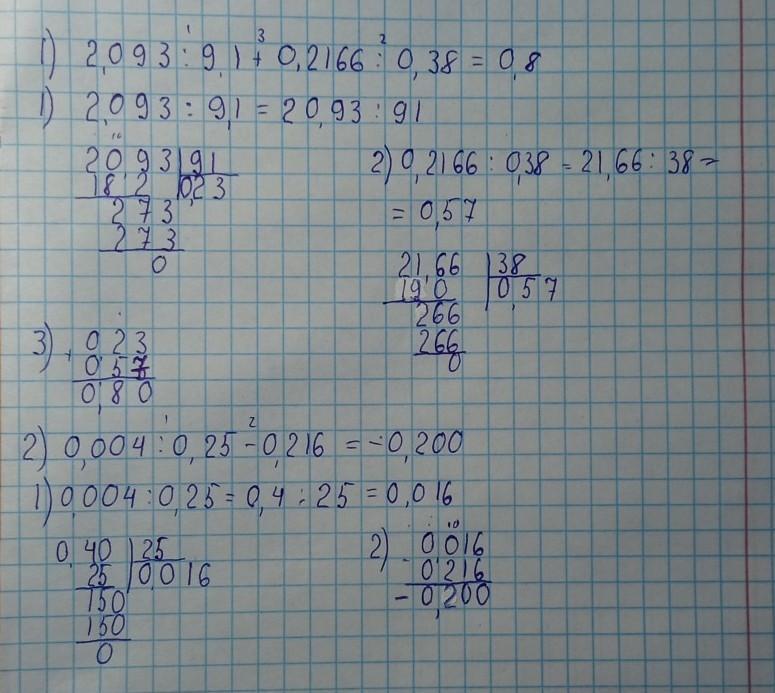 1) 2,093 : 9,1 + 0,2166 : 0,38 = 0,8
1) 2,093 : 9,1 = 20,93 : 91
2093 | 91
182 | 0,23
273
273
0
2) 0,2166 : 0,38 = 21,66 : 38 =
= 0,57
21,66 | 38
190 | 0,57
266
266
0
3) + 0,23
0,57
0,80
2) 0,004 : 0,25 - 0,216 = -0,200
1) 0,004 : 0,25 = 0,4 : 25 = 0,016
0,40 | 25
25 | 0,016
150
150
0
2) - 0,016
0,216
- 0,200